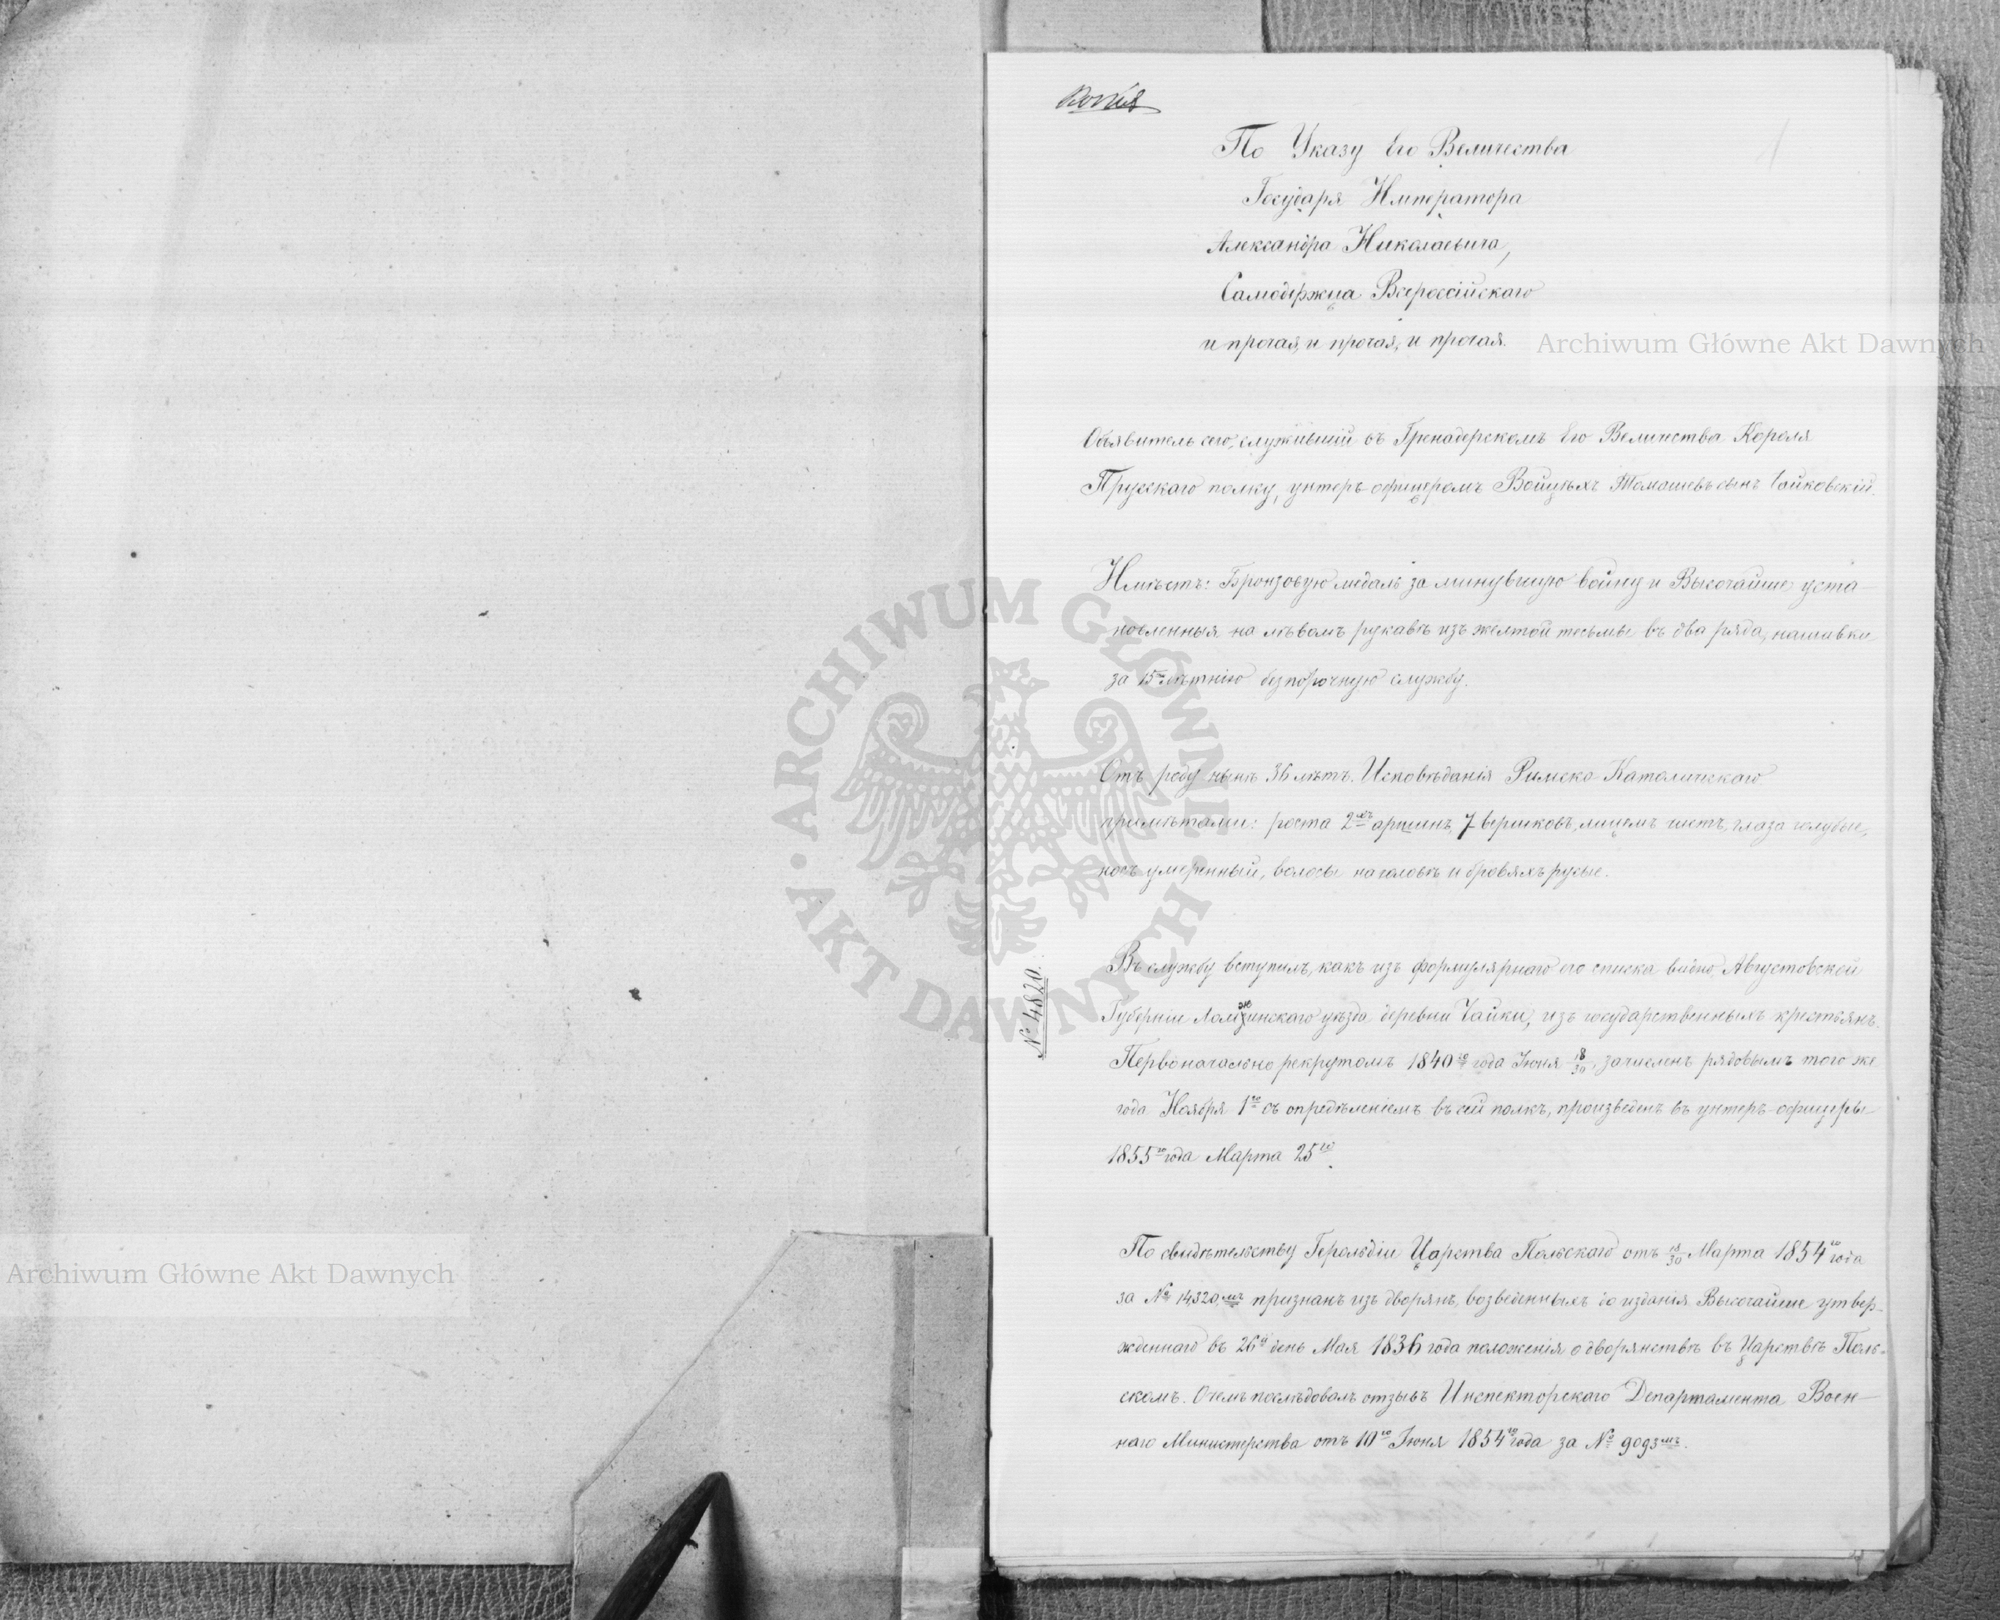 Копія
По Указу Его Величества
Государя Императора
Александра Николаевича,
Самодержца Всероссійскаго
и прочая, и прочая, и прочая.
Объявитель сего, служившій въ Гренадерскомъ Его Величества Короля
Прусскаго полку, унтеръ-офицеромъ Войцѣхъ Томашевъ сынъ Чайковскій.
Имѣетъ: Бронзовую медаль за минувшую войну и Высочайше уста
новленныя на лѣвомъ рукавѣ изъ желтой тесьмы въ два ряда, нашивки
за 15ти лѣтнюю безпорочную службу.
Отъ роду нынѣ 36 лѣтъ. Исповѣданія Римско-Католическаго
примѣтами: роста 2хъ аршинъ, 7 вершковъ, лицемъ чистъ, глаза голубые,
носъ умеренный, волосы на головѣ и бровяхъ русые.
Въ службу вступилъ, какъ изъ формулярнаго его списка видно, Августовской
Губерніи Ломжинскаго уѣзда деревни Чайки, изъ государственныхъ крестьянъ.
Первоначально рекрутомъ 1840го года Іюня 18/30, зачисленъ рядовымъ того же
года Ноября 1го съ опредѣленіемъ въ сей полкъ, произведенъ въ унтеръ-офицеры
1855го года Марта 25го.
№ 4820.
По свидѣтельству Герольдіи Царства Польскаго отъ 18/30 Марта 1854го года
за № 14320мъ признанъ изъ дворянъ, возведенныхъ до изданія Высочайше утвер-
жденнаго въ 26й день Мая 1836 года положенія о дворянствѣ въ Царствѣ Поль-
скомъ. О чемъ послѣдовалъ отзывъ Инспекторскаго Департамента Воен-
наго Министерства отъ 10го Іюня 1854го года за № 9093мъ.
Archiwum Główne Akt Dawnych
Archiwum Główne Akt Dawnych
ARCHIWUM GŁÓWNE AKT DAWNYCH